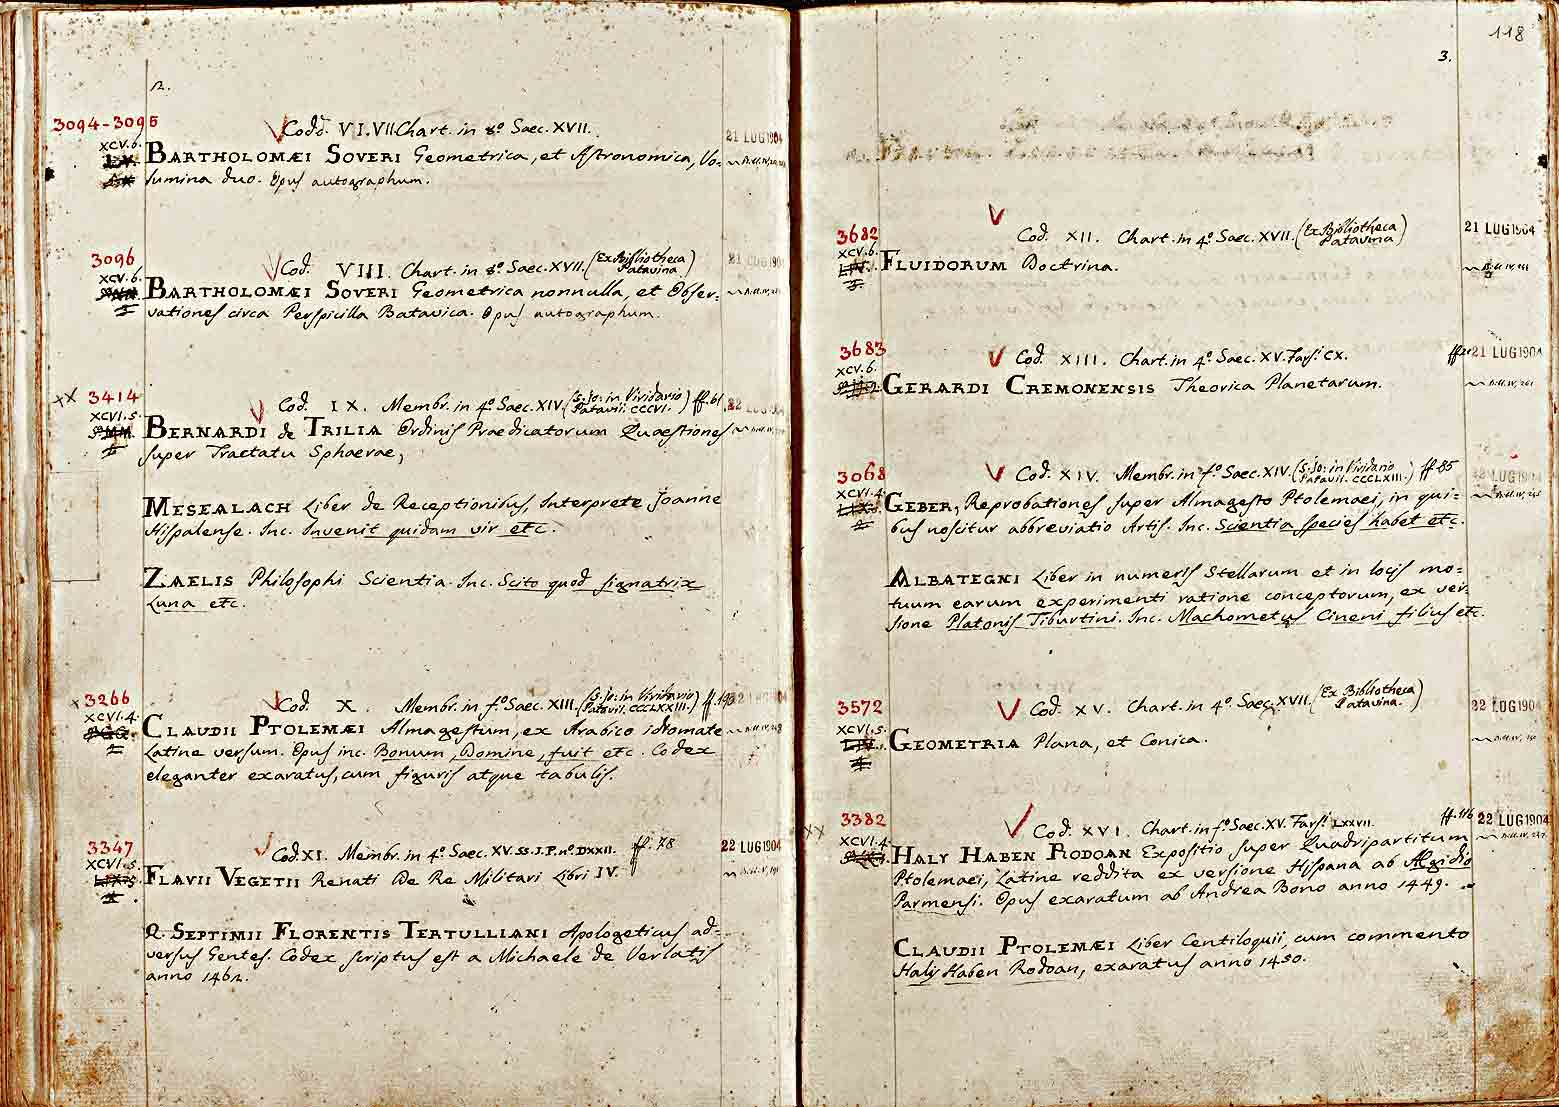 2.
3094-3095
Codd. VI. VII. Chart. in 8.º Saec. XVII.
21 LUG 1904
XCV.6.
BARTHOLOMÆI SOVERI Geometrica, et Astronomica, Vo-
lumina duo. Opus autographum.
3096
Cod. VIII. Chart. in 8.º Saec. XVII. (Ex Bibliotheca Patavina)
21 LUG 1904
XCV.6.
BARTHOLOMÆI SOVERI Geometrica nonnulla, et Obser-
vationes circa Perspicilla Batavica. Opus autographum.
XX 3414
Cod. IX. Membr. in 4.º Saec. XIV. (S. Jo: in Viridario Patavii. CCCVI.) ff. 61
22 LUG 1904
XCVI.5.
BERNARDI de TRILIA Ordinis Praedicatorum Quaestiones
super Tractatu Sphaerae,
MESEALACH Liber de Receptionibus, Interprete Joanne
Hispalense. Inc. Invenit quidam vir etc.
ZAELIS Philosophi Scientia. Inc. Scito quod signatrix
Luna etc.
x 3266
Cod. X. Membr. in f.º Saec. XIII. (S. Jo: in Viridario Patavii. CCCLXXIII.)
XCVI.4.
CLAUDII PTOLEMÆI Almagestum, ex Arabico idiomate
Latine versum. Opus inc. Bonum, Domine, fuit etc. Codex
eleganter exaratus, cum figuris atque tabulis.
3347
Cod. XI. Membr. in 4.º Saec. XV. SS. J. P. nº. DXXII. ff. 78
22 LUG 1904
XCVI.5.
FLAVII VEGETII Renati De Re Militari Libri IV.
Q. SEPTIMII FLORENTIS TERTULLIANI Apologeticus ad-
versus Gentes. Codex scriptus est a Michaele de Verlatis
anno 1462.
118
3.
3682
Cod. XII. Chart. in 4.º Saec. XVII. (Ex Bibliotheca Patavina)
21 LUG 1904
XCV.6.
FLUIDORUM Doctrina.
3683
Cod. XIII. Chart. in 4.º Saec. XV. Fars: CX.
21 LUG 1904
XCV.6.
GERARDI CREMONENSIS Theorica Planetarum.
3068
Cod. XIV. Membr. in f.º Saec. XIV. (S. Jo: in Viridario Patavii. CCCLXIII.) ff. 85
22 LUG 1904
XCVI.4.
GEBER, Reprobationes super Almagesto Ptolemaei, in qui-
bus noscitur abbreviatio Artis. Inc. Scientia species habet etc.
ALBATEGNI Liber in numeris Stellarum et in locis mo-
tuum earum experimenti ratione conceptorum, ex ver-
sione Platonis Tiburtini. Inc. Machometus Cineni filius etc.
3572
Cod. XV. Chart. in 4.º Saec. XVII. (Ex Bibliotheca Patavina.)
22 LUG 1904
XCVI.5.
GEOMETRIA Plana, et Conica.
XX 3382
Cod. XVI. Chart. in f.º Saec. XV. Fars: LXXVII. ff. 116
22 LUG 1904
XCVI.4.
HALY HABEN RODOAN Expositio super Quadripartitum
Ptolemaei, Latine reddita ex versione Hispana ab Ægidio
Parmensi. Opus exaratum ab Andrea Bono anno 1449.
CLAUDII PTOLEMÆI Liber Centiloquii, cum commento
Haly Haben Rodoan, exaratus anno 1450.